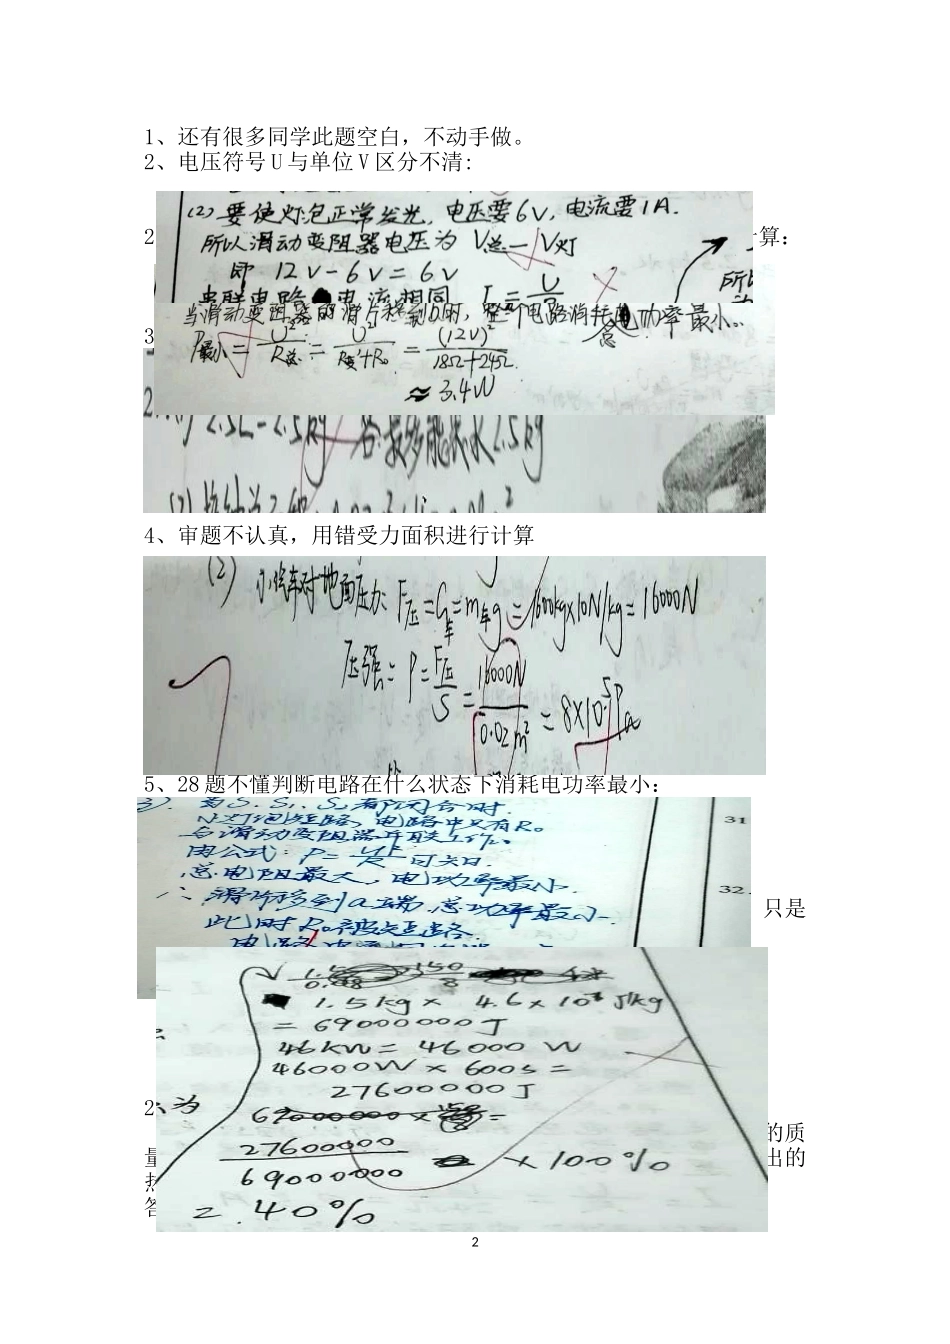 1、还有很多同学此题空白，不动手做。
2、电压符号 U 与单位 V 区分不清:
(2)要使灯泡正常发光,电压要6V,电流要1A.
2 算：
所以滑动变阻器电压为 V总－V灯
即 12V－6V=6V
串联电路 电流相同 I=U/R
当滑动变阻器的滑片移到b时，整个电路消耗总电功率最小。
3
P最小= U²/R总 = U²/R变+R₀ = (12V)²/18Ω+24Ω
≈3.4W
2.5L-2.5kg 答:最多能装水2.5kg
4、审题不认真，用错受力面积进行计算
(2) 小汽车对地面压力: F压=G车=m车g=1600kg×10N/kg=16000N
压强: P=F压/S=16000N/0.02m²=8×10⁵Pa
5、28 题不懂判断电路在什么状态下消耗电功率最小：
3). 当S、S₁、S₂都闭合时.
31
与滑动变阻器并联工作。
由公式: P=U²/R 可知.
总电阻最大, 电功率最小.
32
∴滑片移到a端,总功率最小.
只是
此时R₀被短路
1.5kg × 4.6×10⁷ J/kg
= 69000000J
46KW = 46000 W
46000W × 600s =
27600000J
2 为
27600000/69000000 ×100%
的质
量 出的
热
答
= 40%
2